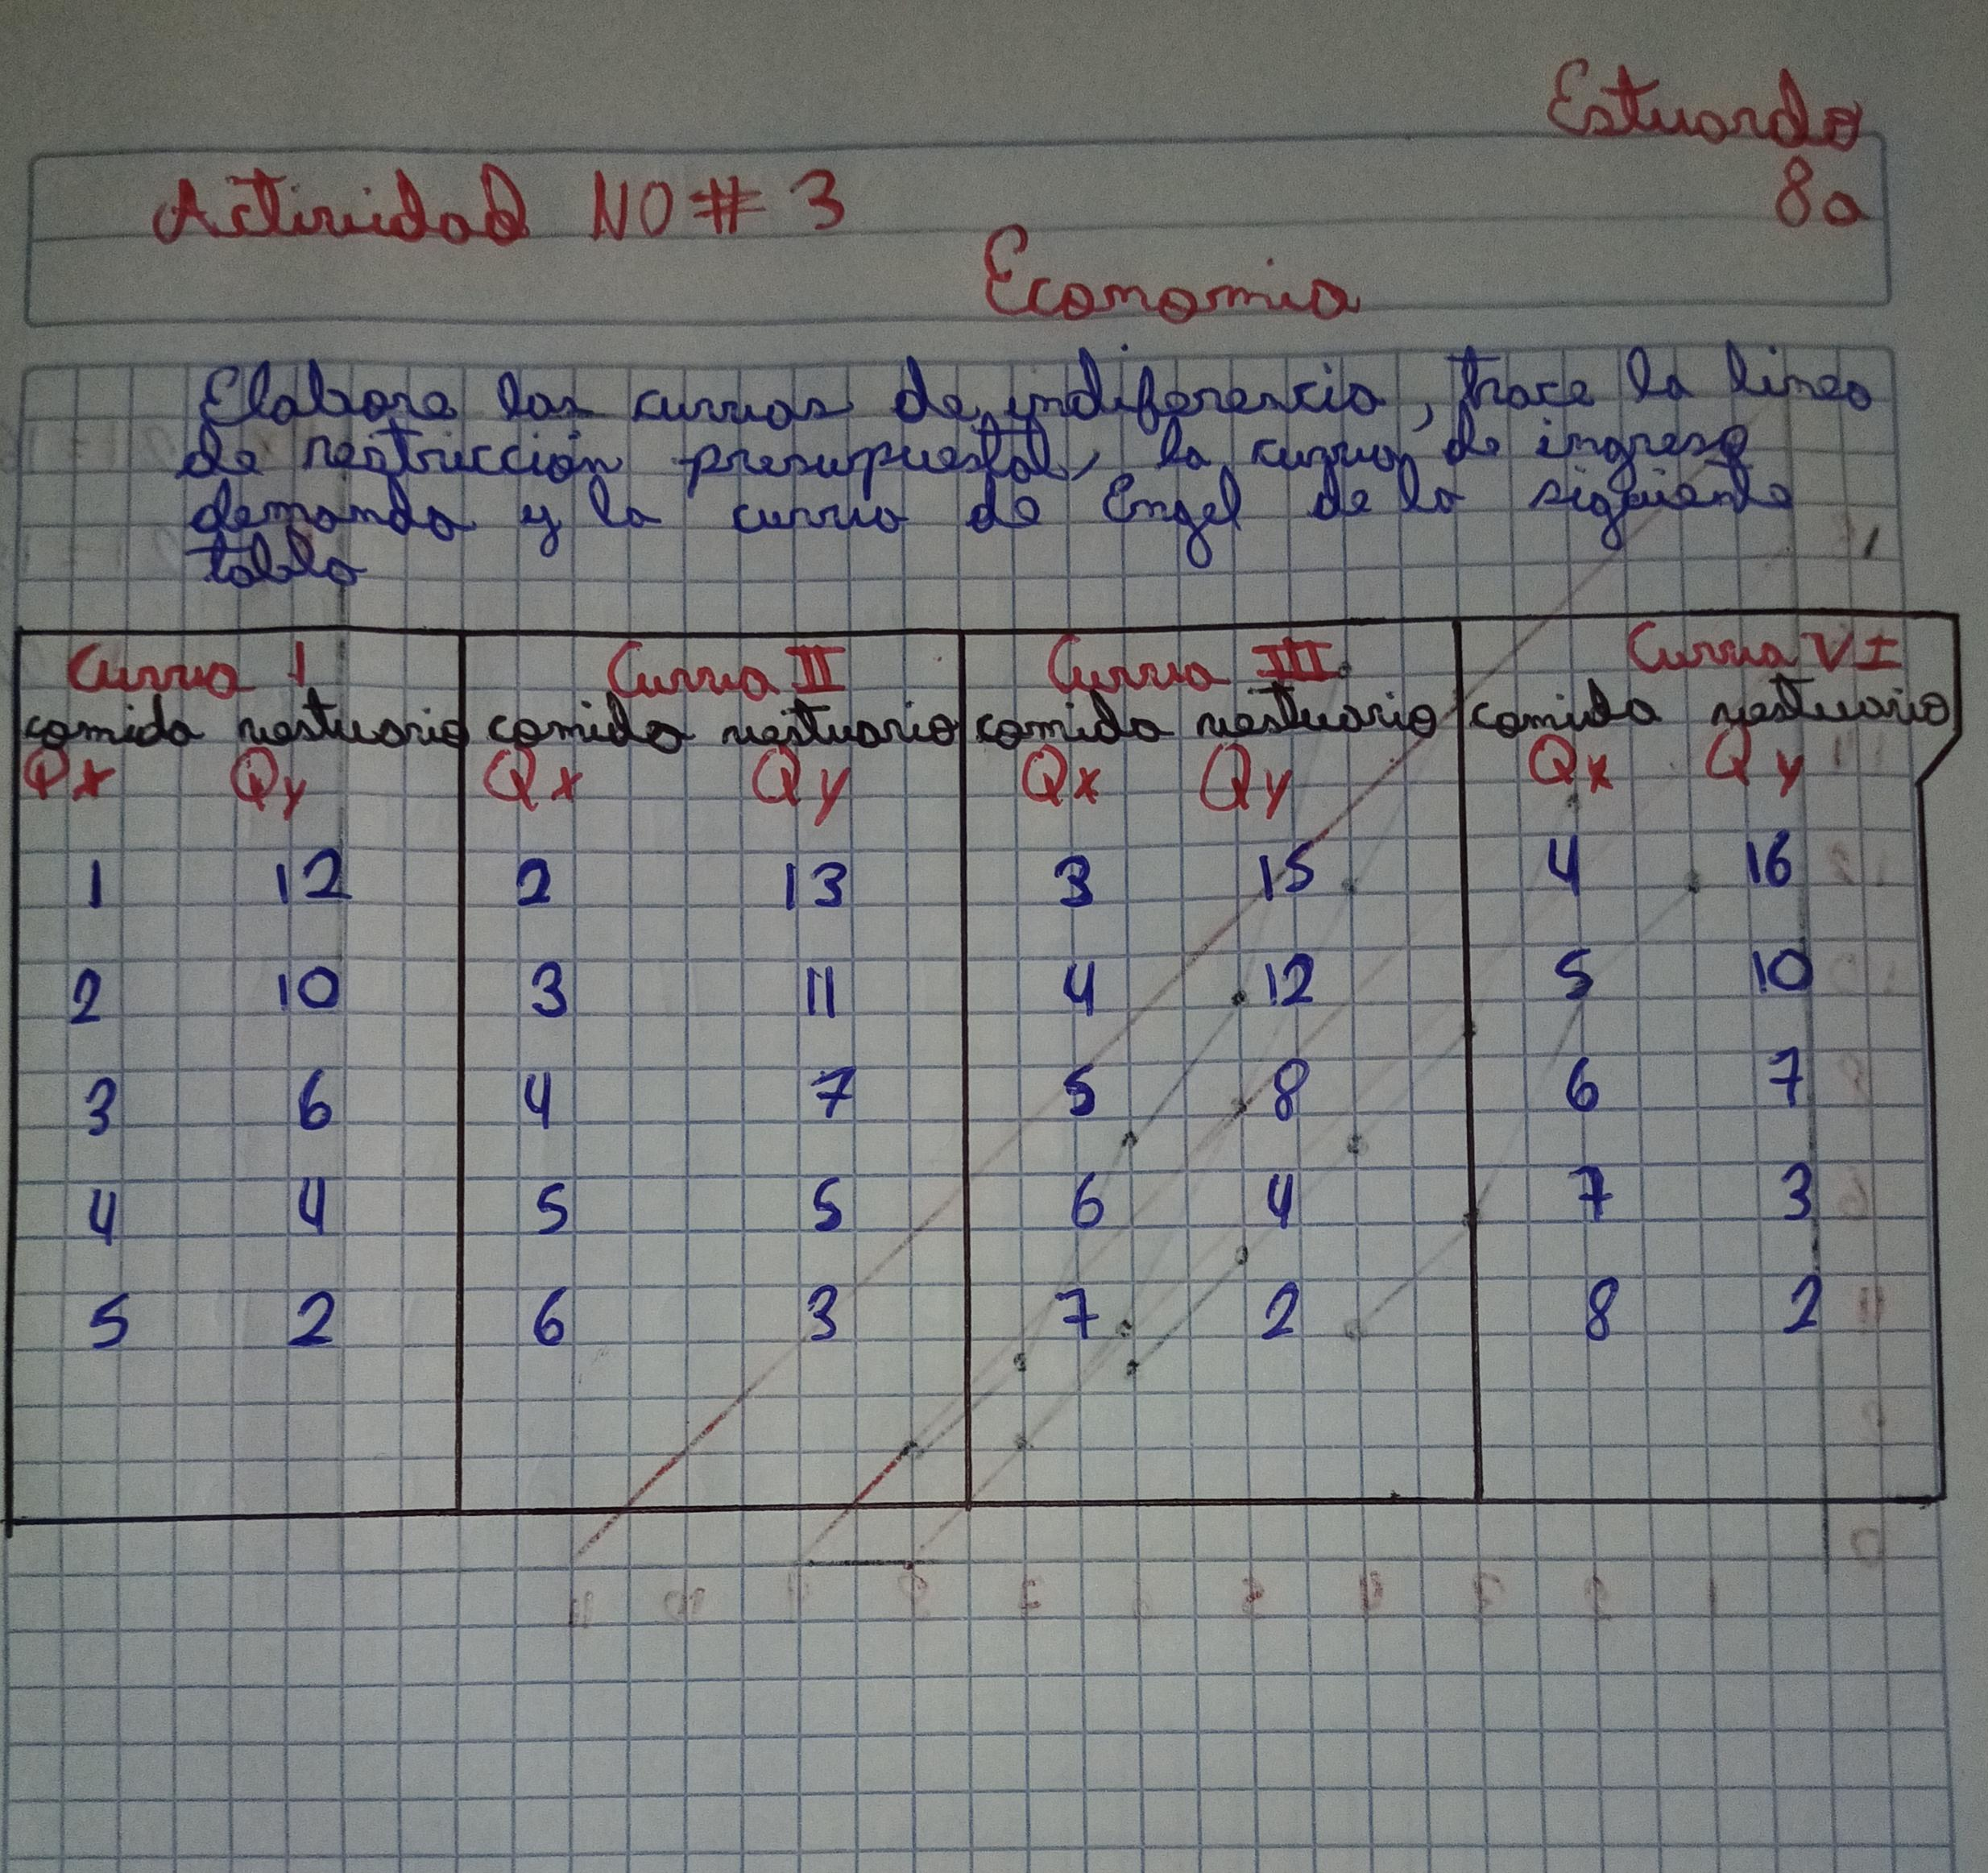 Estuardo
Actividad NO # 3
8a
Economia
Elabora las curvas de indiferencia, trace la linea
de restricción presupuestal, la curva de ingreso
demanda y la curva de Engel de la siguiente
tabla
Curva I Curva II Curva III Curva VI
comida vestuario comida vestuario comida vestuario comida vestuario
Qx Qy Qx Qy Qx Qy Qx Qy
1 12 2 13 3 15 4 16
2 10 3 11 4 12 5 10
3 6 4 7 5 8 6 7
4 4 5 5 6 4 7 3
5 2 6 3 7 2 8 2